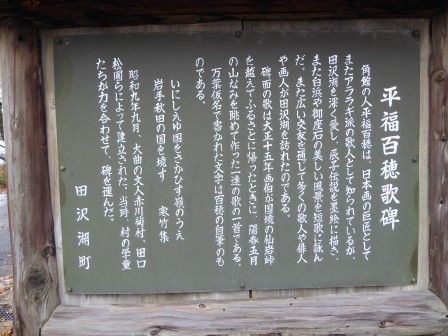 平福百穂歌碑
角館の人平福百穂は、日本画の巨匠として
またアララギ派の歌人として知られているが、
田沢湖を深く愛し、辰子伝説を墨絵に描き、
また白浜や御座石の美しい風景を短歌に詠ん
だ。また広い交友を通して多くの歌人や俳人
や画人が田沢湖を訪れたのである。
碑面の歌は大正十五年画伯が国境の仙岩峠
を越えてふるさとに帰ったときに、陽春五月
の山なみを眺めて作った一連の歌の一首である。
万葉仮名で書かれた文字は百穂の自筆のも
のである。
いにしえゆ国をさかひす嶺のうえ
岩手秋田の国を境す
寒竹集
昭和九年九月、大曲の文人赤川菊村、田口
松圃らによって建立された。当時、村の学童
たちが力を合わせて、碑を運んだ。
田沢湖町